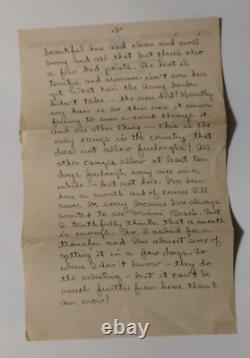 -3-
beautiful sun and clean and
living and all that but there's also
a few bad points. The heat is
terrific and summer isn't even here
yet. that hair the Army barber
didn't take - the sun did! Honestly
my hair is so thin now it never
to run a comb through it.
And one other thing - this is the
only camp in the country that
does not allow furloughs! All
other camps allow at least ten
days furlough every once in a
while - but not here. I've been
here a month and of course I'll
never be sorry because I've always
wanted to see Miami Beach. But I
truthfully think that a month
is enough. So, I asked for a
transfer and I'm almost sure of
getting it in a few days. So
where I don't know - they do
the selecting - but it can't be
much further from home than I
am now!
ebay